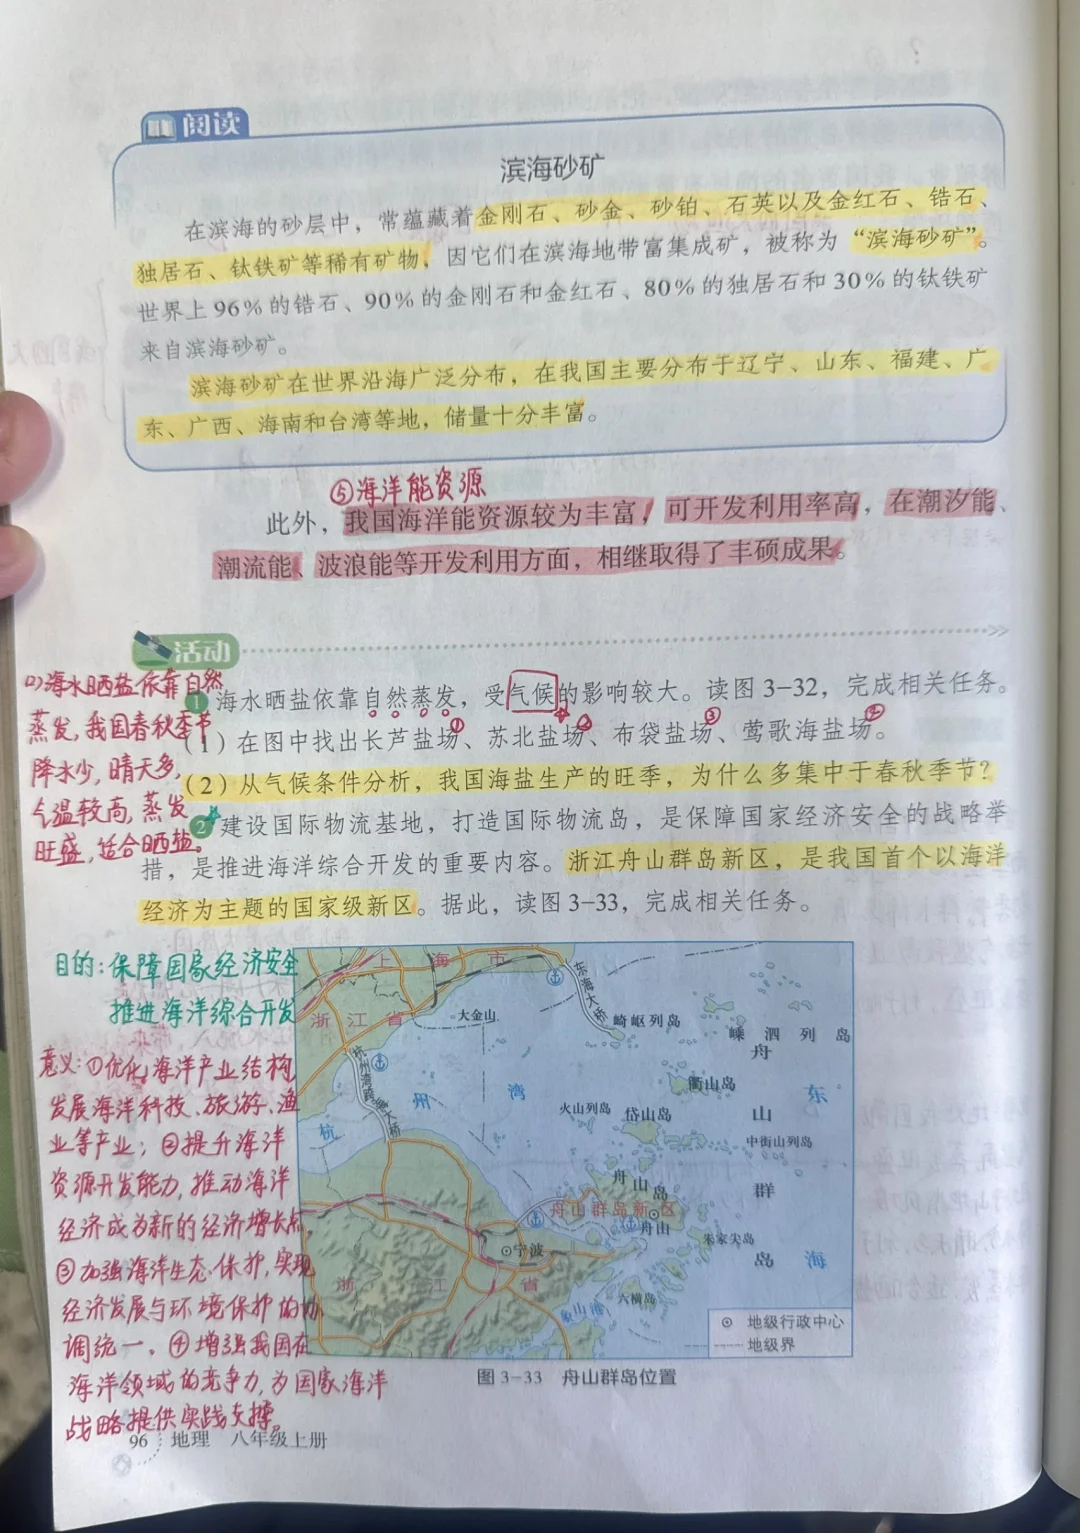 阅读
滨海砂矿
在滨海的砂层中，常蕴藏着金刚石、砂金、砂铂、石英以及金红石、锆石、
独居石、钛铁矿等稀有矿物，因它们在滨海地带富集成矿，被称为“滨海砂矿”。
世界上96%的锆石、90%的金刚石和金红石、80%的独居石和30%的钛铁矿
来自滨海砂矿。
滨海砂矿在世界沿海广泛分布，在我国主要分布于辽宁、山东、福建、广
东、广西、海南和台湾等地，储量十分丰富。
⑤海洋能资源
此外，我国海洋能资源较为丰富，可开发利用率高，在潮汐能、
潮流能、波浪能等开发利用方面，相继取得了丰硕成果。
活动
1 海水晒盐依靠自然蒸发，受气候的影响较大。读图3-32，完成相关任务。
① ② ③ ④
(1) 在图中找出长芦盐场、苏北盐场、布袋盐场、莺歌海盐场。
(2) 从气候条件分析，我国海盐生产的旺季，为什么多集中于春秋季节？
2 建设国际物流基地，打造国际物流岛，是保障国家经济安全的战略举
措，是推进海洋综合开发的重要内容。浙江舟山群岛新区，是我国首个以海洋
经济为主题的国家级新区。据此，读图3-33，完成相关任务。
(2)海水晒盐依靠自然
蒸发，我国春秋季节
降水少，晴天多，
气温较高，蒸发
旺盛，适合晒盐。
目的：保障国家经济安全
推进海洋综合开发
意义：①优化海洋产业结构
发展海洋科技、旅游、渔
业等产业；②提升海洋
资源开发能力，推动海洋
经济成为新的经济增长点，
③加强海洋生态保护，实现
经济发展与环境保护的协
调统一，④增强我国在
海洋领域的竞争力，为国家海洋
战略提供实践支撑。
上海市
浙江省
大金山
东海大桥
崎岖列岛
嵊泗列岛
杭州湾跨海大桥
杭州湾
衢山岛
火山列岛
岱山岛
中街山列岛
舟山群岛
东海
舟山岛
舟山群岛新区
舟山
朱家尖岛
宁波
浙江省
六横岛
象山港
地级行政中心
地级界
图3-33 舟山群岛位置
96 地理 八年级上册